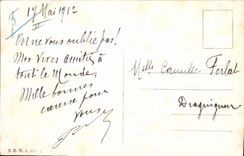 17 Mai 1912
On ne vous oublie pas!
Mes vives amitiés à
tout le Monde
Mille bonnes
caresses pour
vous
Melle Camille Ferlat
Draguignan